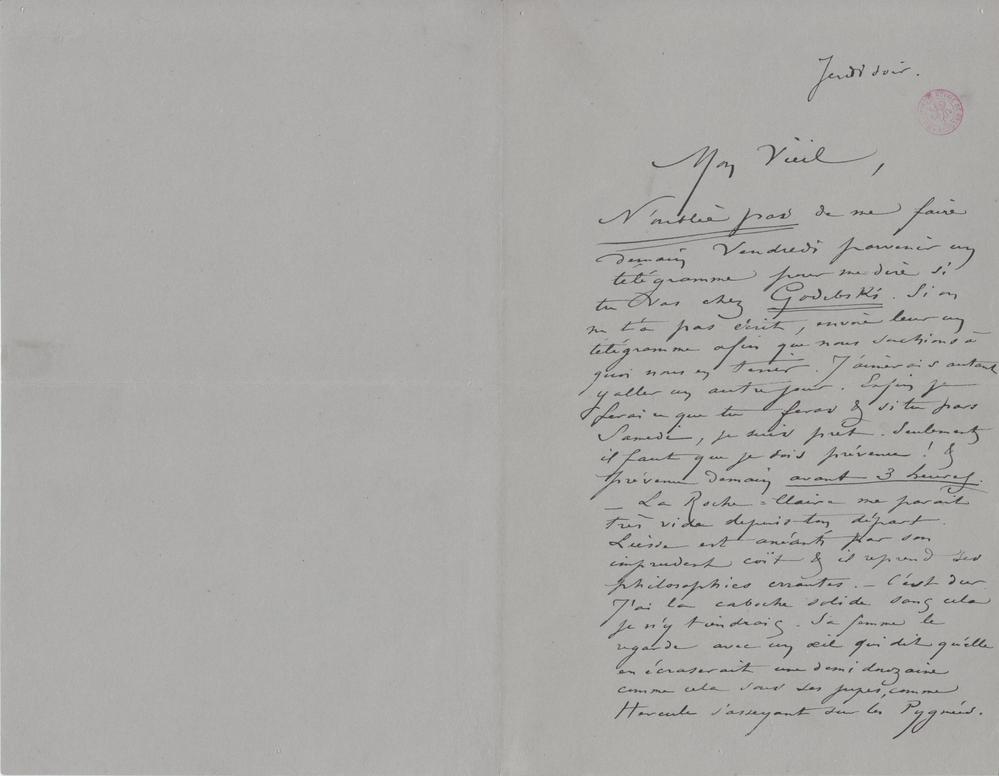 Jeudi soir.
Mon Vieil,
N'oublie pas de me faire
demain Vendredi parvenir un
télégramme pour me dire si
tu vas chez Godebski. Si on
ne t'a pas écrit, envoie leur un
télégramme afin que nous sachions à
quoi nous en tenir. J'aimerais autant
y aller un autre jour. Enfin je
ferai ce que tu feras & si tu pars
Samedi, je suis prêt. Seulement
il faut que je sois prévenu ! &
prévenu demain avant 3 heures.
_ La Roche=Claire me paraît
très vide depuis ton départ.
Liesse est anéanti par son
imprudent coït & il reprend ses
philosophies errantes. _ C'est dur
J'ai la caboche solide sans cela
je n'y tiendrais. Sa femme le
regarde avec un œil qui dit qu'elle
en écraserait une demi douzaine
comme cela sous ses jupes, comme
Hercule s'asseyant sur les Pygmées.